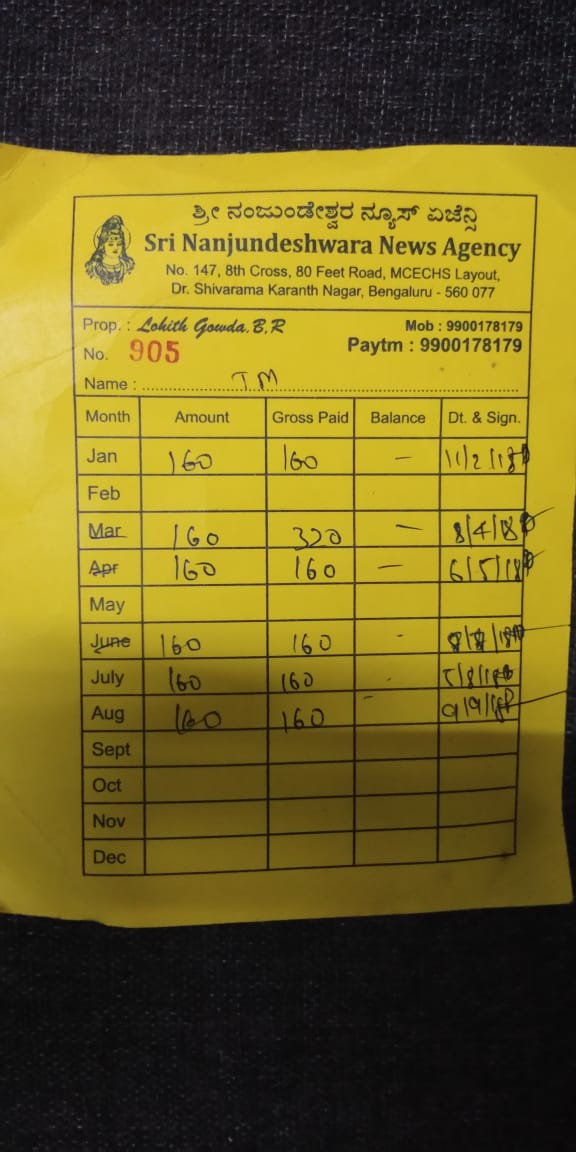 ಶ್ರೀ ನಂಜುಂಡೇಶ್ವರ ನ್ಯೂಸ್ ಏಜೆನ್ಸಿ
Sri Nanjundeshwara News Agency
No. 147, 8th Cross, 80 Feet Road, MCECHS Layout,
Dr. Shivarama Karanth Nagar, Bengaluru - 560 077
Prop. : Lohith Gowda.B,R Mob : 9900178179
No. 905 Paytm : 9900178179
Name : TM
Month Amount Gross Paid Balance Dt. & Sign.
Jan 160 160 – 11/2/18
Feb
Mar 160 320 – 8/4/18
Apr 160 160 – 6/5/18
May
June 160 160 -
July 160 160 -
Aug 160 160 - 9/9/18
Sept
Oct
Nov
Dec